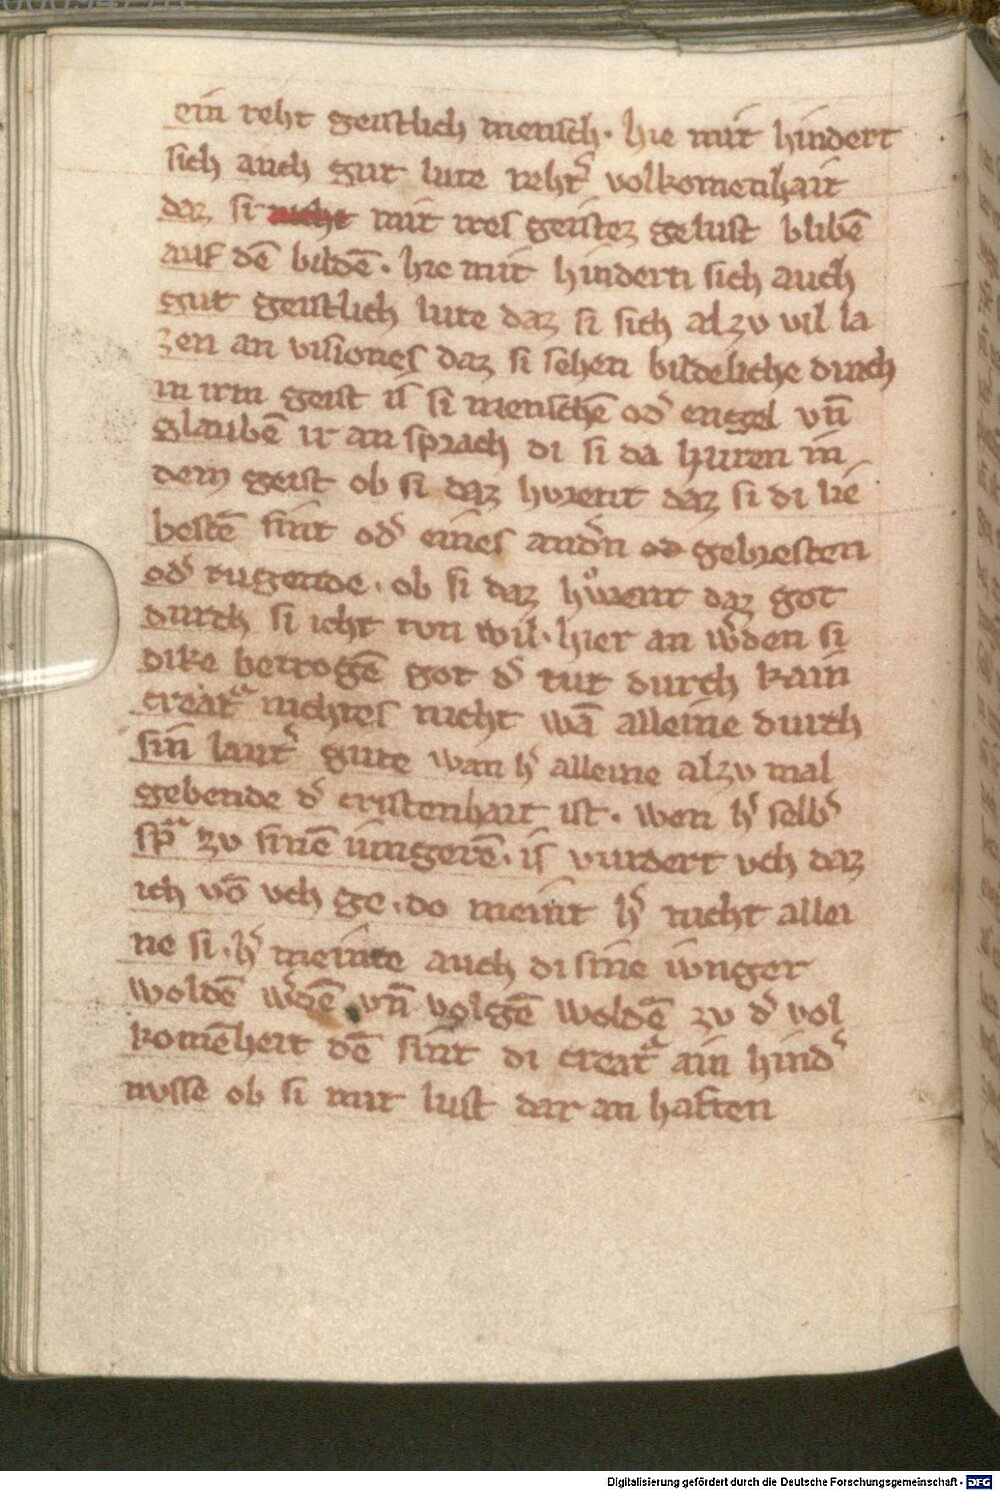 ein reht geistlich mensch. hie mit hindert
sich auch gut lute rehtˀ volkomenhait
daz si nicht mit ires geistez gelust blibē
auf dē bildē. hie mit hindern sich auch
gut geistlich lute daz si sich alzv vil la
zen an visiones daz si sehen bildeliche durch
in irm geist is si menschē odˀ engel vn̄
glaubē ir an sprach di si da huren in
dem geist ob si daz hvrent daz si di lie
bestē sint odˀ eines andˀn od gebresten
odˀ tugende. ob si daz hůrent daz got
durch si icht tvn wil. hier an wˀden si
dike betrogē got dˀ tut durch kain
creatᵃ nichtes nicht wā alleine durch
sin lautˀ gute wan hˀ alleine alzv mal
gebende dˀ cristenhait ist. wen hˀ selbˀ
spᵃ zv sinē iungerē. is vurdert vch daz
ich vō vch ge. do meint hˀ nicht allei
ne si. hˀ meinte auch di sine ivnger
woldē wˀdē vn̄ volgē woldē zv dˀ vol
komēheit dē sint di creatᵃ ain hindˀ
nvsse ob si mit lust dar an haften
Digitalisierung gefördert durch die Deutsche Forschungsgemeinschaft - DFG